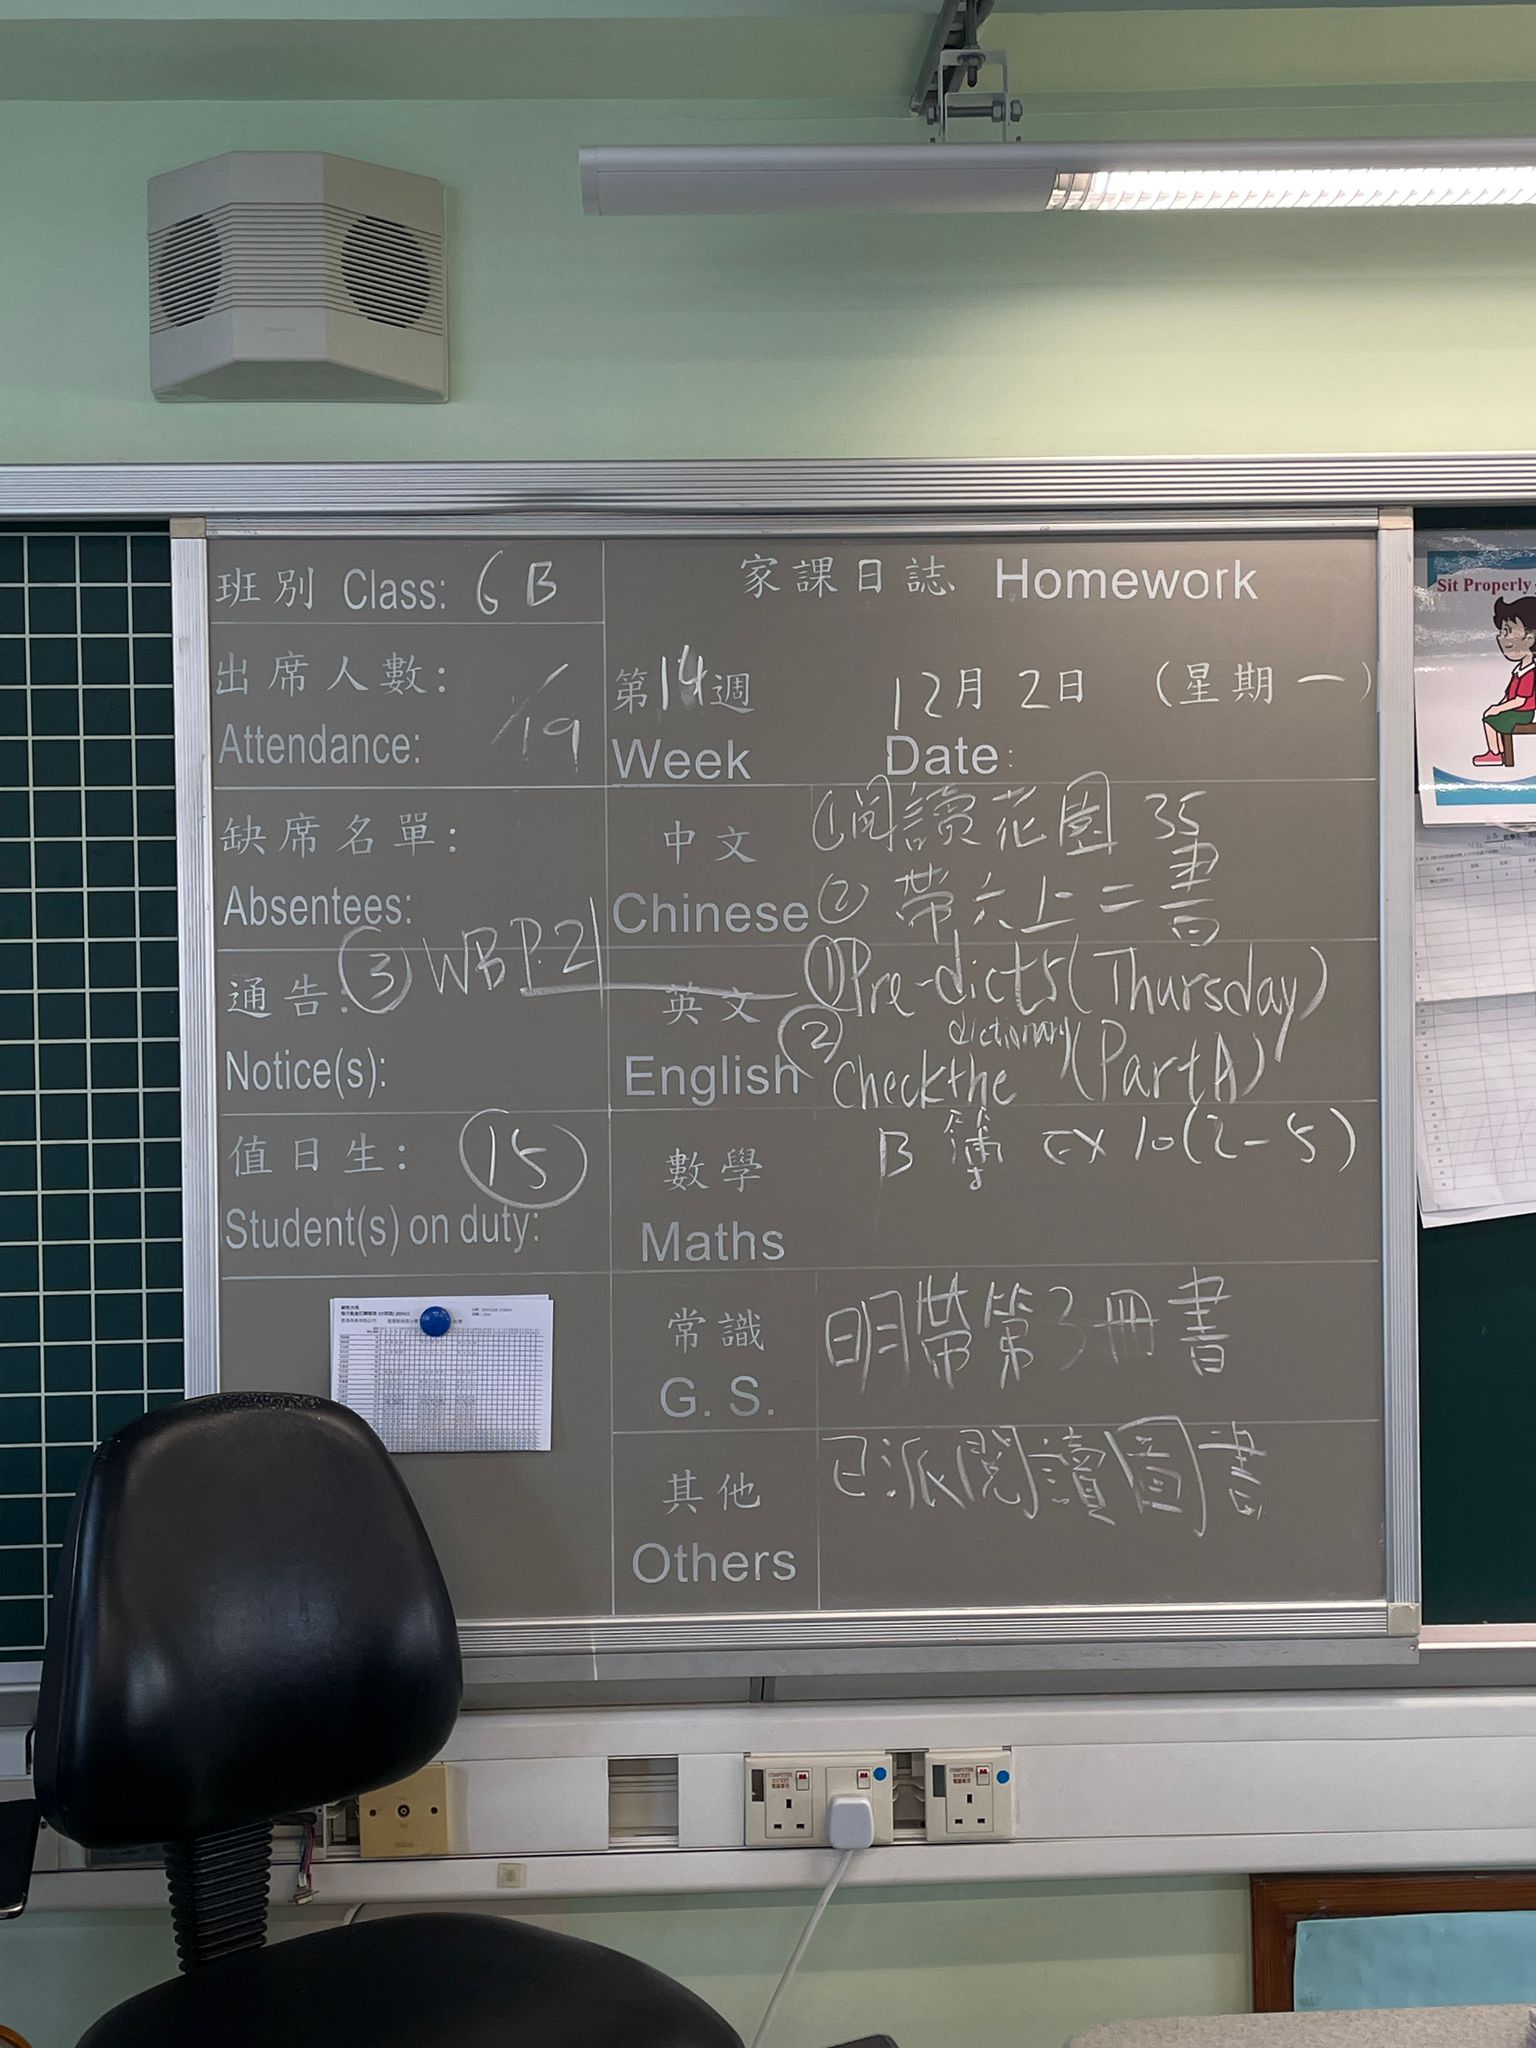 班別 Class: 6B
家課日誌 Homework
出席人數:
Attendance: /19
第14週 12月2日 (星期一)
Week Date:
缺席名單:
Absentees:
中文
Chinese
①閱讀花園 35
② 帶六上二書
通告:
Notice(s):
英文
English
①Pre-dicts(Thursday)
② Check the dictionary (Part A)
③ WB P.21
值日生: 15
Student(s) on duty:
數學
Maths
B 簿 Ex 10(2-5)
常識
G. S.
明帶第3冊書
其他
Others
已派閱讀圖書
Sit Properly
COMPUTER SOCKET
COMPUTER SOCKET